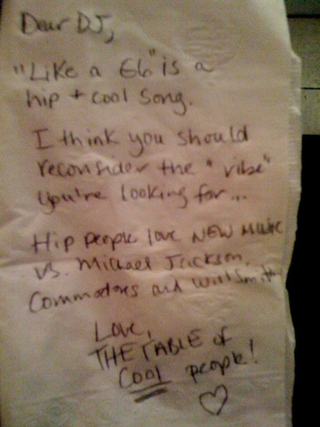 Dear DJ,
"Like a G6" is a
hip + cool song.
I think you should
reconsider the "vibe"
you're looking for...
Hip people love NEW MUSIC
vs. Michael Jackson,
Commodores and Will Smith
Love,
THE TABLE of
Cool people!